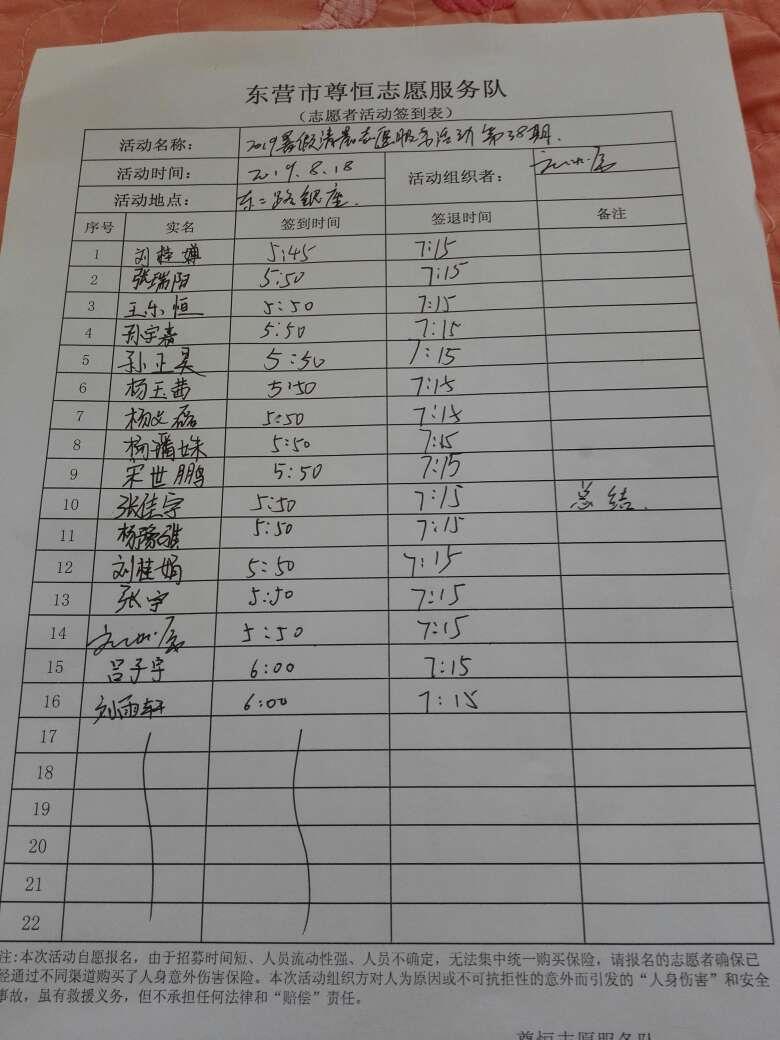 东营市尊恒志愿服务队
（志愿者活动签到表）
活动名称： 2019暑假清晨志愿服务活动第38期.
活动时间： 2019.8.18 活动组织者：
活动地点： 东二路银座.
序号 实名 签到时间 签退时间 备注
1 刘桂 5:45 7:15
2 张瑞阳 5:50 7:15
3 王乐恒 5:50 7:15
4 孙宇嘉 5:50 7:15
5 孙正昊 5:50 7:15
6 杨玉茜 5:50 7:15
7 杨文磊 5:50 7:15
8 杨姝 5:50 7:15
9 宋世鹏 5:50 7:15
10 张佳宇 5:50 7:15 总结.
11 杨 5:50 7:15
12 刘桂娟 5:50 7:15
13 张宇 5:50 7:15
14 5:50 7:15
15 吕子宇 6:00 7:15
16 刘雨轩 6:00 7:15
17
18
19
20
21
22
注:本次活动自愿报名，由于招募时间短、人员流动性强、人员不确定，无法集中统一购买保险，请报名的志愿者确保已
经通过不同渠道购买了人身意外伤害保险。本次活动组织方对人为原因或不可抗拒性的意外而引发的“人身伤害”和安全
事故，虽有救援义务，但不承担任何法律和“赔偿”责任。
尊恒志愿服务队